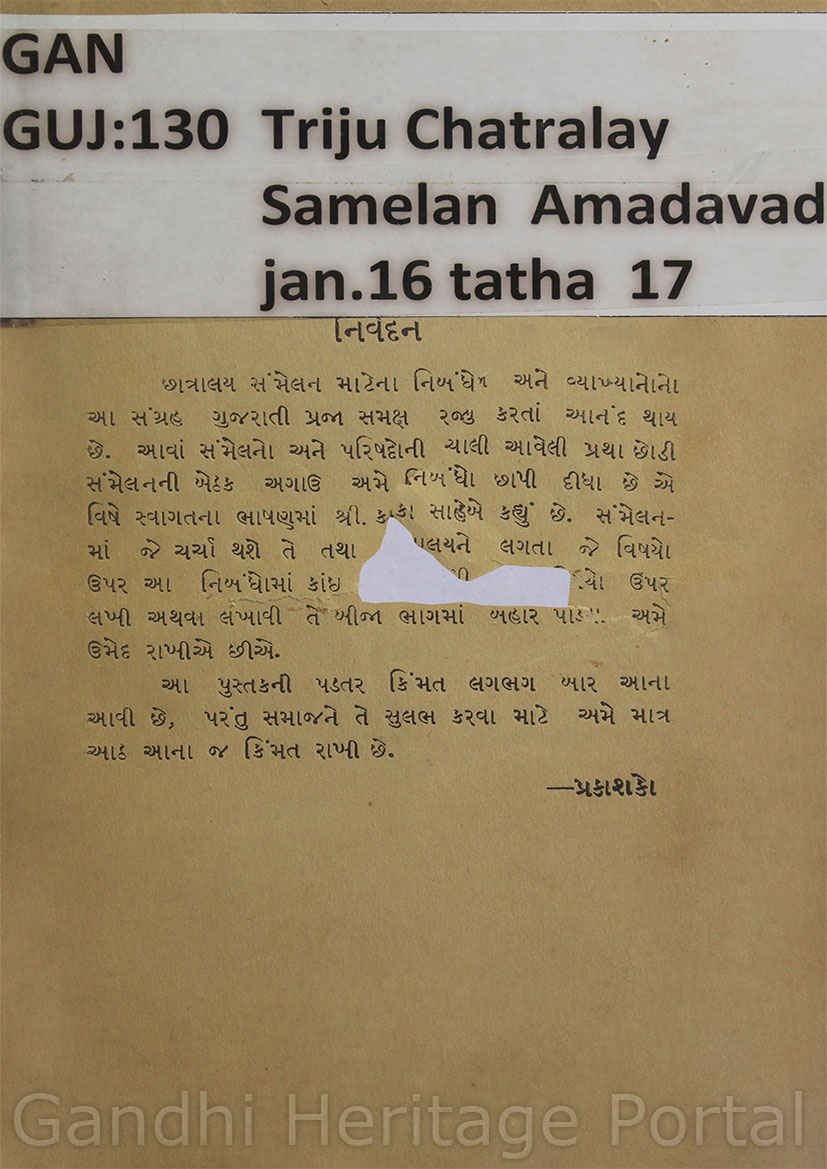 GAN
GUJ:130 Triju Chatralay
Samelan Amadavad
jan.16 tatha 17
નિવેદન
છાત્રાલય સંમેલન માટેના નિબંધો અને વ્યાખ્યાનોનો
આ સંગ્રહ ગુજરાતી પ્રજા સમક્ષ રજુ કરતાં આનંદ થાય
છે. આવાં સંમેલનો અને પરિષદોની ચાલી આવેલી પ્રથા છોડી
સંમેલનની બેઠક અગાઉ અમે નિબંધો છાપી દીધા છે એ
વિષે સ્વાગતના ભાષણમાં શ્રી. કાકા સાહેબે કહ્યું છે. સંમેલન-
માં જે ચર્ચા થશે તે તથા લગતા જે વિષયો
ઉપર આ નિબંધોમાં કાંઇ ઉપર
લખી અથવા લખાવી તે બીજા ભાગમાં બહાર પાડવા અમે
ઉમેદ રાખીએ છીએ.
આ પુસ્તકની પડતર કિંમત લગભગ બાર આના
આવી છે, પરંતુ સમાજને તે સુલભ કરવા માટે અમે માત્ર
આઠ આના જ કિંમત રાખી છે.
—પ્રકાશકો
Gandhi Heritage Portal